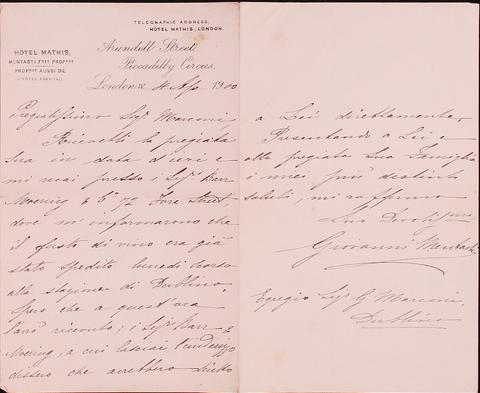 TELEGRAPHIC ADDRESS,
HÔTEL MATHIS, LONDON.
HÔTEL MATHIS,
MENTASTI
AUSSI DE
Arundell Street,
Piccadilly Circus,
London, W. 4 Ap 1900
Pregiatissimo Sigr Marconi,
Ricevetti la pregiata
sua in data d'ieri e
mi recai presso i Sigri Barr
Moering & Co 72 Fore Street
dove m'informarono che
il fusto di vino era già
stato spedito lunedì scorso
alla stazione di Dublino,
Spero che a quest'ora
l'avrà ricevuto; i Sigri Barr &
Moering, a cui lasciai l'indirizzo
dissero che avrebbero scritto
a Lei direttamente,
Presentando a Lei e
alla pregiata Sua Famiglia
i miei più distinti
saluti, mi raffermo
Suo Devotissmo
Giovanni Mentasti
Egregio Sigr G Marconi,
Dublino